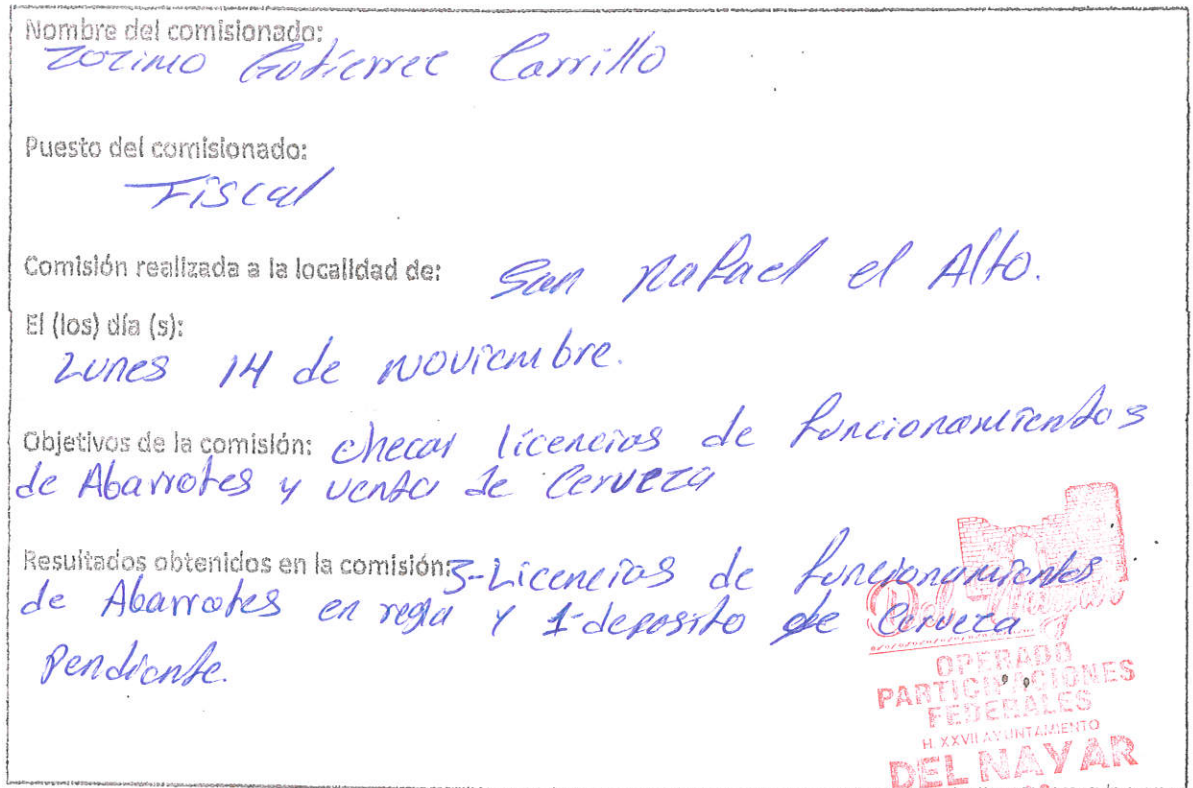 Nombre del comisionado:
Zozimo Gutierrez Carrillo
Puesto del comisionado:
Fiscal
Comisión realizada a la localidad de: San Rafael el Alto.
El (los) día (s):
Lunes 14 de Noviembre.
Objetivos de la comisión: checar licencias de funcionamientos
de Abarrotes y venta de Cerveza
Resultados obtenidos en la comisión: 3-Licencias de funcionamientos
de Abarrotes en regla y 1-deposito de Cerveza
Pendiente.
Del Nayar
OPERADO
PARTICIPACIONES
FEDERALES
H. XXVII AYUNTAMIENTO
DEL NAYAR